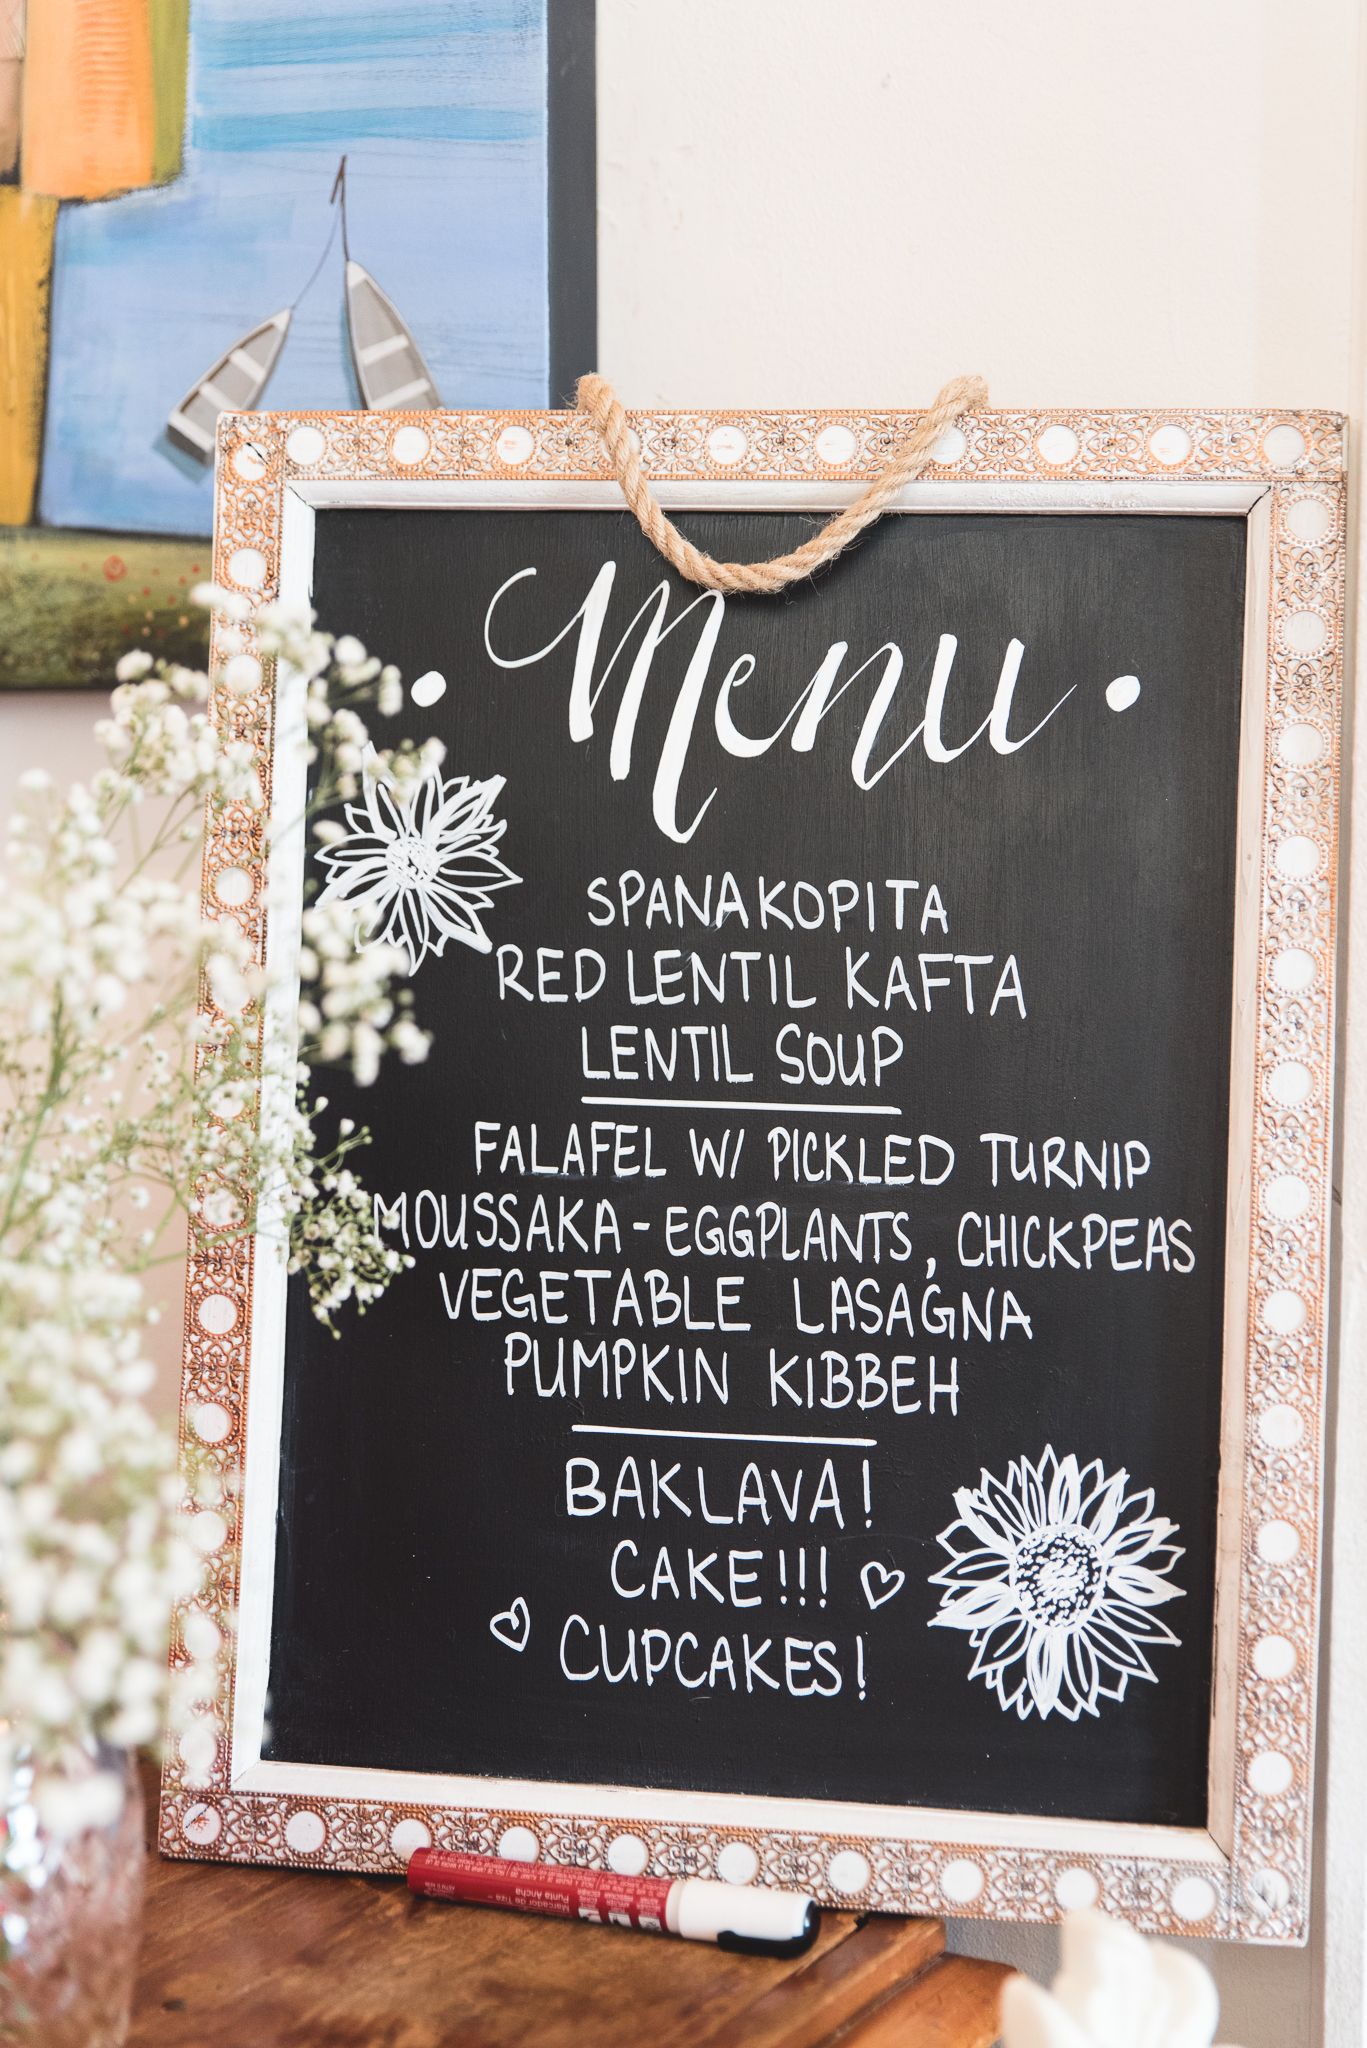 Menu
SPANAKOPITA
RED LENTIL KAFTA
LENTIL SOUP
FALAFEL W/ PICKLED TURNIP
MOUSSAKA - EGGPLANTS, CHICKPEAS
VEGETABLE LASAGNA
PUMPKIN KIBBEH
BAKLAVA!
CAKE!!!
CUPCAKES!
Marcador de Tiza
Punta Ancha